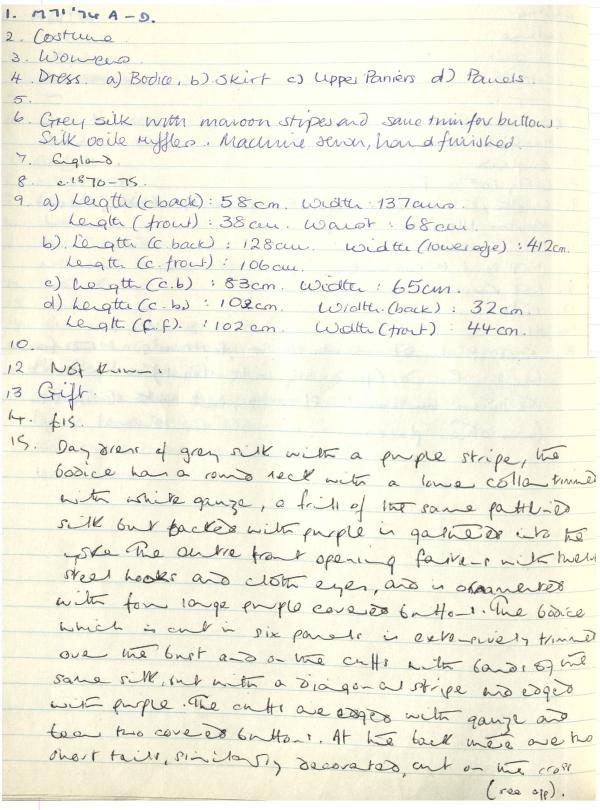 1. M71'74 A-D.
2. Costume
3. Womens
4. Dress. a) Bodice, b) Skirt c) Upper Paniers d) Panels.
5.
6. Grey silk with maroon stripes and same trim for buttons.
Silk voile ruffles. Machine sewn, hand finished.
7. England.
8. c.1870-75.
9. a) Length (c back) : 58cm. Width : 137cms.
Length (front) : 38cm. Waist : 68cm.
b). Length (c. back) : 128cm. Width (lower edge) : 412cm.
Length (c. front) : 106cm.
c) Length (c.b) : 83cm. Width : 65cm.
d) Length (c.b) : 102cm. Width (back) : 32cm
Length (c.f.) : 102cm. Width (front) : 44cm.
10.
12 Not Known.
13 Gift.
14. £15.
15. Day dress of grey silk with a purple stripe, the
bodice has a round neck with a low collar trimmed
with white gauze, a frill of the same patterned
silk but backed with purple is gathered into the
yoke The centre front opening fastens with twelve
steel hooks and cloth eyes, and is ornamented
with four large purple covered buttons. The bodice
which is cut in six panels is extensively trimmed
over the bust and on the cuffs with bands of the
same silk, but with a diagonal stripe and edged
with purple. The cuffs are edged with gauze and
bear two covered buttons. At the back there are two
short tails, similarly decorated, cut on the cross
(see opp).